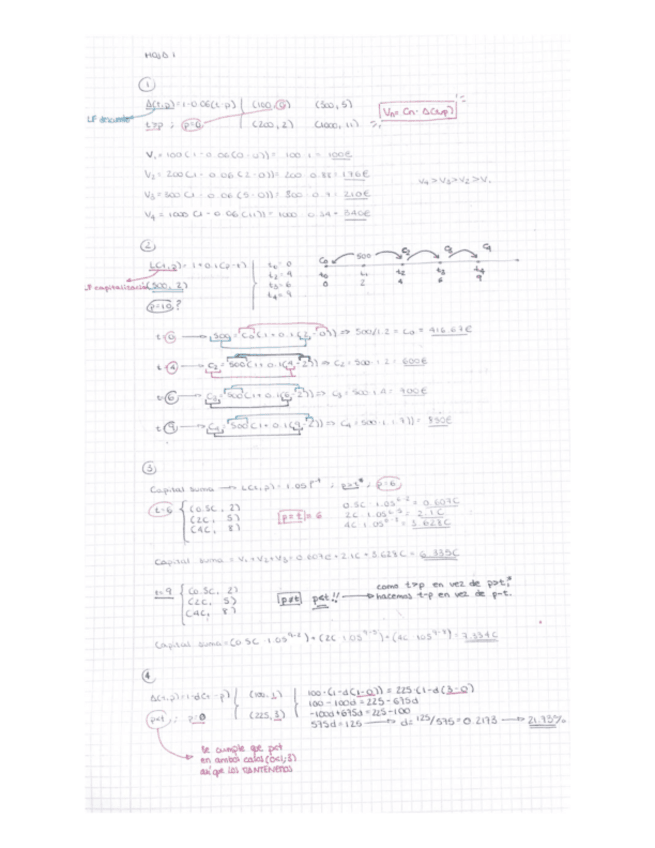 HOJA 1
①
A(t,p)=1-0.06(t-p) (100,0) (300,5) Vn= Cn · A(t,p)
LF descuento
t>p ; p=0 (200,2) (1000,11)
V1=100(1-0.06(0-0))= 100·1= 100€
V2=200(1-0.06(2-0))=200·0.88=176€
V3=300(1-0.06(5-0))=300·0.7=210€
V4=1000(1-0.06(11))=1000·0.34=340€
V4>V3>V2>V1
②
L(t,p)=1+0.1(p-t)
LF capitalización (500,2)
p=10?
t0=0
t2=4
t3=6
t4=9
C0 500 C2 C3 C4
t0 t1 t2 t3 t4
0 2 4 6 9
t=0 → 500=C0(1+0.1(2-0)) ⇒ 500/1.2=C0= 416.67€
t=4 → C2=500(1+0.1(4-2)) ⇒ C2=500·1.2=600€
t=6 → C3=500(1+0.1(6-2)) ⇒ C3=500·1.4=700€
t=9 → C4=500(1+0.1(9-2)) ⇒ C4=500·1.7 ⇒ 850€
③
Capital suma → L(t,p)=1.05^p-t ; p>t ; p=6
t=6 (0.5C, 2)
(2C, 5)
(4C, 8)
p=t=6
0.5C·1.05^6-2=0.607C
2C·1.05^6-5=2.1C
4C·1.05^6-8=3.628C
Capital suma = V1+V2+V3=0.607C+2.1C+3.628C=6.335C
t=9 (0.5C, 2)
(2C, 5)
(4C, 8)
p≠t p<t!!
como t>p en vez de p>t,
hacemos t-p en vez de p-t.
Capital suma=(0.5C·1.05^9-2)+(2C·1.05^9-5)+(4C·1.05^9-8)=7.334C
④
A(t,p)=1-d(t-p) (100,1)
p<t ; p=0 (225,3)
100·(1-d(1-0))=225·(1-d(3-0))
100-100d=225-675d
-100d+675d=225-100
575d=125 → d=125/575=0.2173 → 21.73%
Se cumple que p<t
en ambos casos (0<1;3)
así que LOS MANTENEMOS